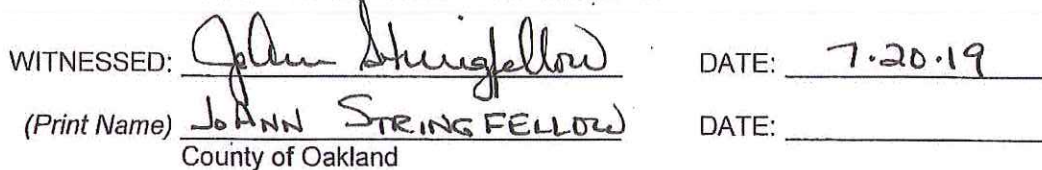 WITNESSED: JoAnn Stringfellow DATE: 7.20.19
(Print Name) JoANN STRINGFELLOW DATE:
County of Oakland